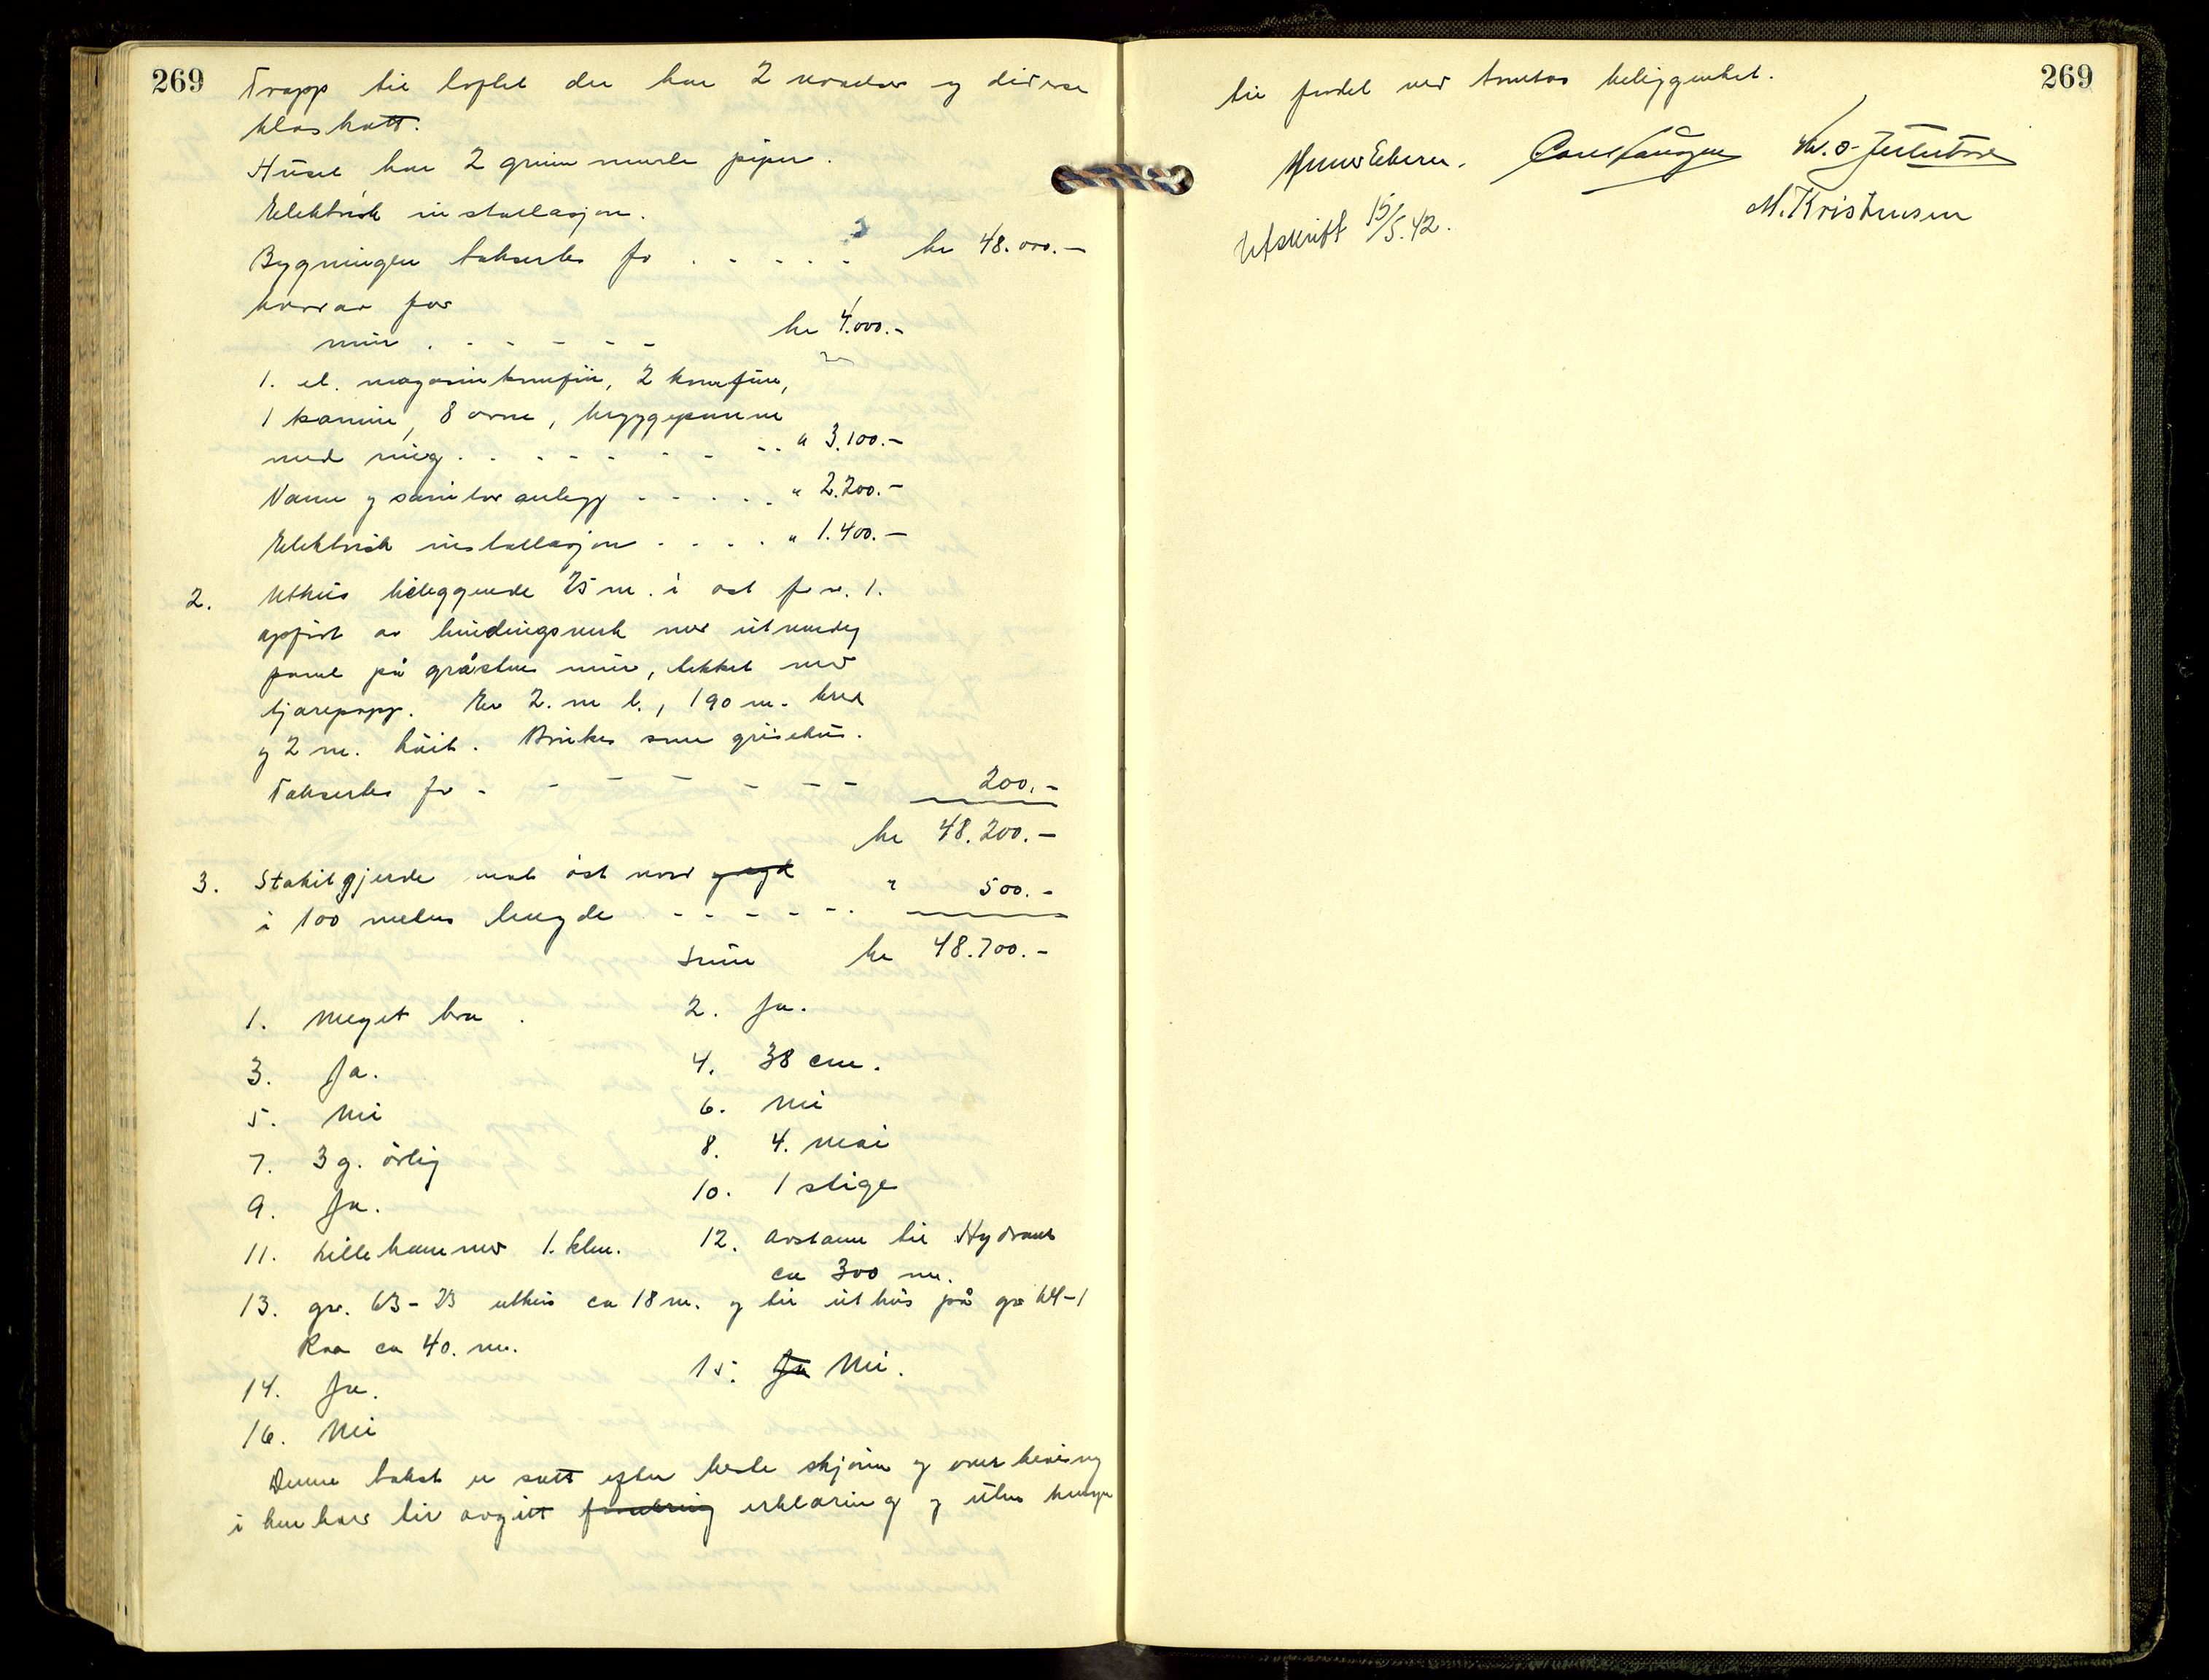 269
Trapp til loftet der har 2 værelser og diverse
kleskott.
Huset har 2 grunnmurte piper.
Elektrisk installasjon.
Bygningen takseres for . . . . . kr 48.000.-
hvorav for
mur . - - - - - kr 4.000.-
1. el. magasinkomfür, 2 komfürer,
1 kamin, 8 ovne, bryggepanne
med ring . . - - - - - - . . " 3.100.-
Vann og sanitæranlegg - - . . . " 2.200.-
Elektrisk installasjon . . . . " 1.400.-
2. Uthus beliggende 25 m. i øst for nr. 1.
oppført av bindingsverk med utvendig
panel på gråstens mur, tekket med
tjærepapp. Er 2. m l., 1 90 m. bred
og 2 m. höit. Brukes som grisehus.
Takseres for - - - - - - - 200.-
kr 48.200.-
3. Stakitgjerde vest øst nord
i 100 meters lengde - - - - - . " 500.-
Sum kr 48.700.-
1. Meget bra . 2. Ja.
3. Ja. 4. 38 cm.
5. Nei 6. Nei
7. 3 g. årlig 8. 4. mai
9. Ja. 10. 1 stige
11. Lillehammer 1. klm. 12. Avstann til Hydrant
ca 300 m.
13. gr. 63-23 uthus ca 18 m. og til uthus på gr 64-1
ca 40. m.
14. Ja. 15. Ja Nei.
16. Nei
Denne takst er satt efter beste skjønn og overbevisning
i henhold til avgitt erklæring og uten hensyn
269
til fordel ved tomtens beliggenhet.
M. Kristensen
Utskrift 15/5.42.